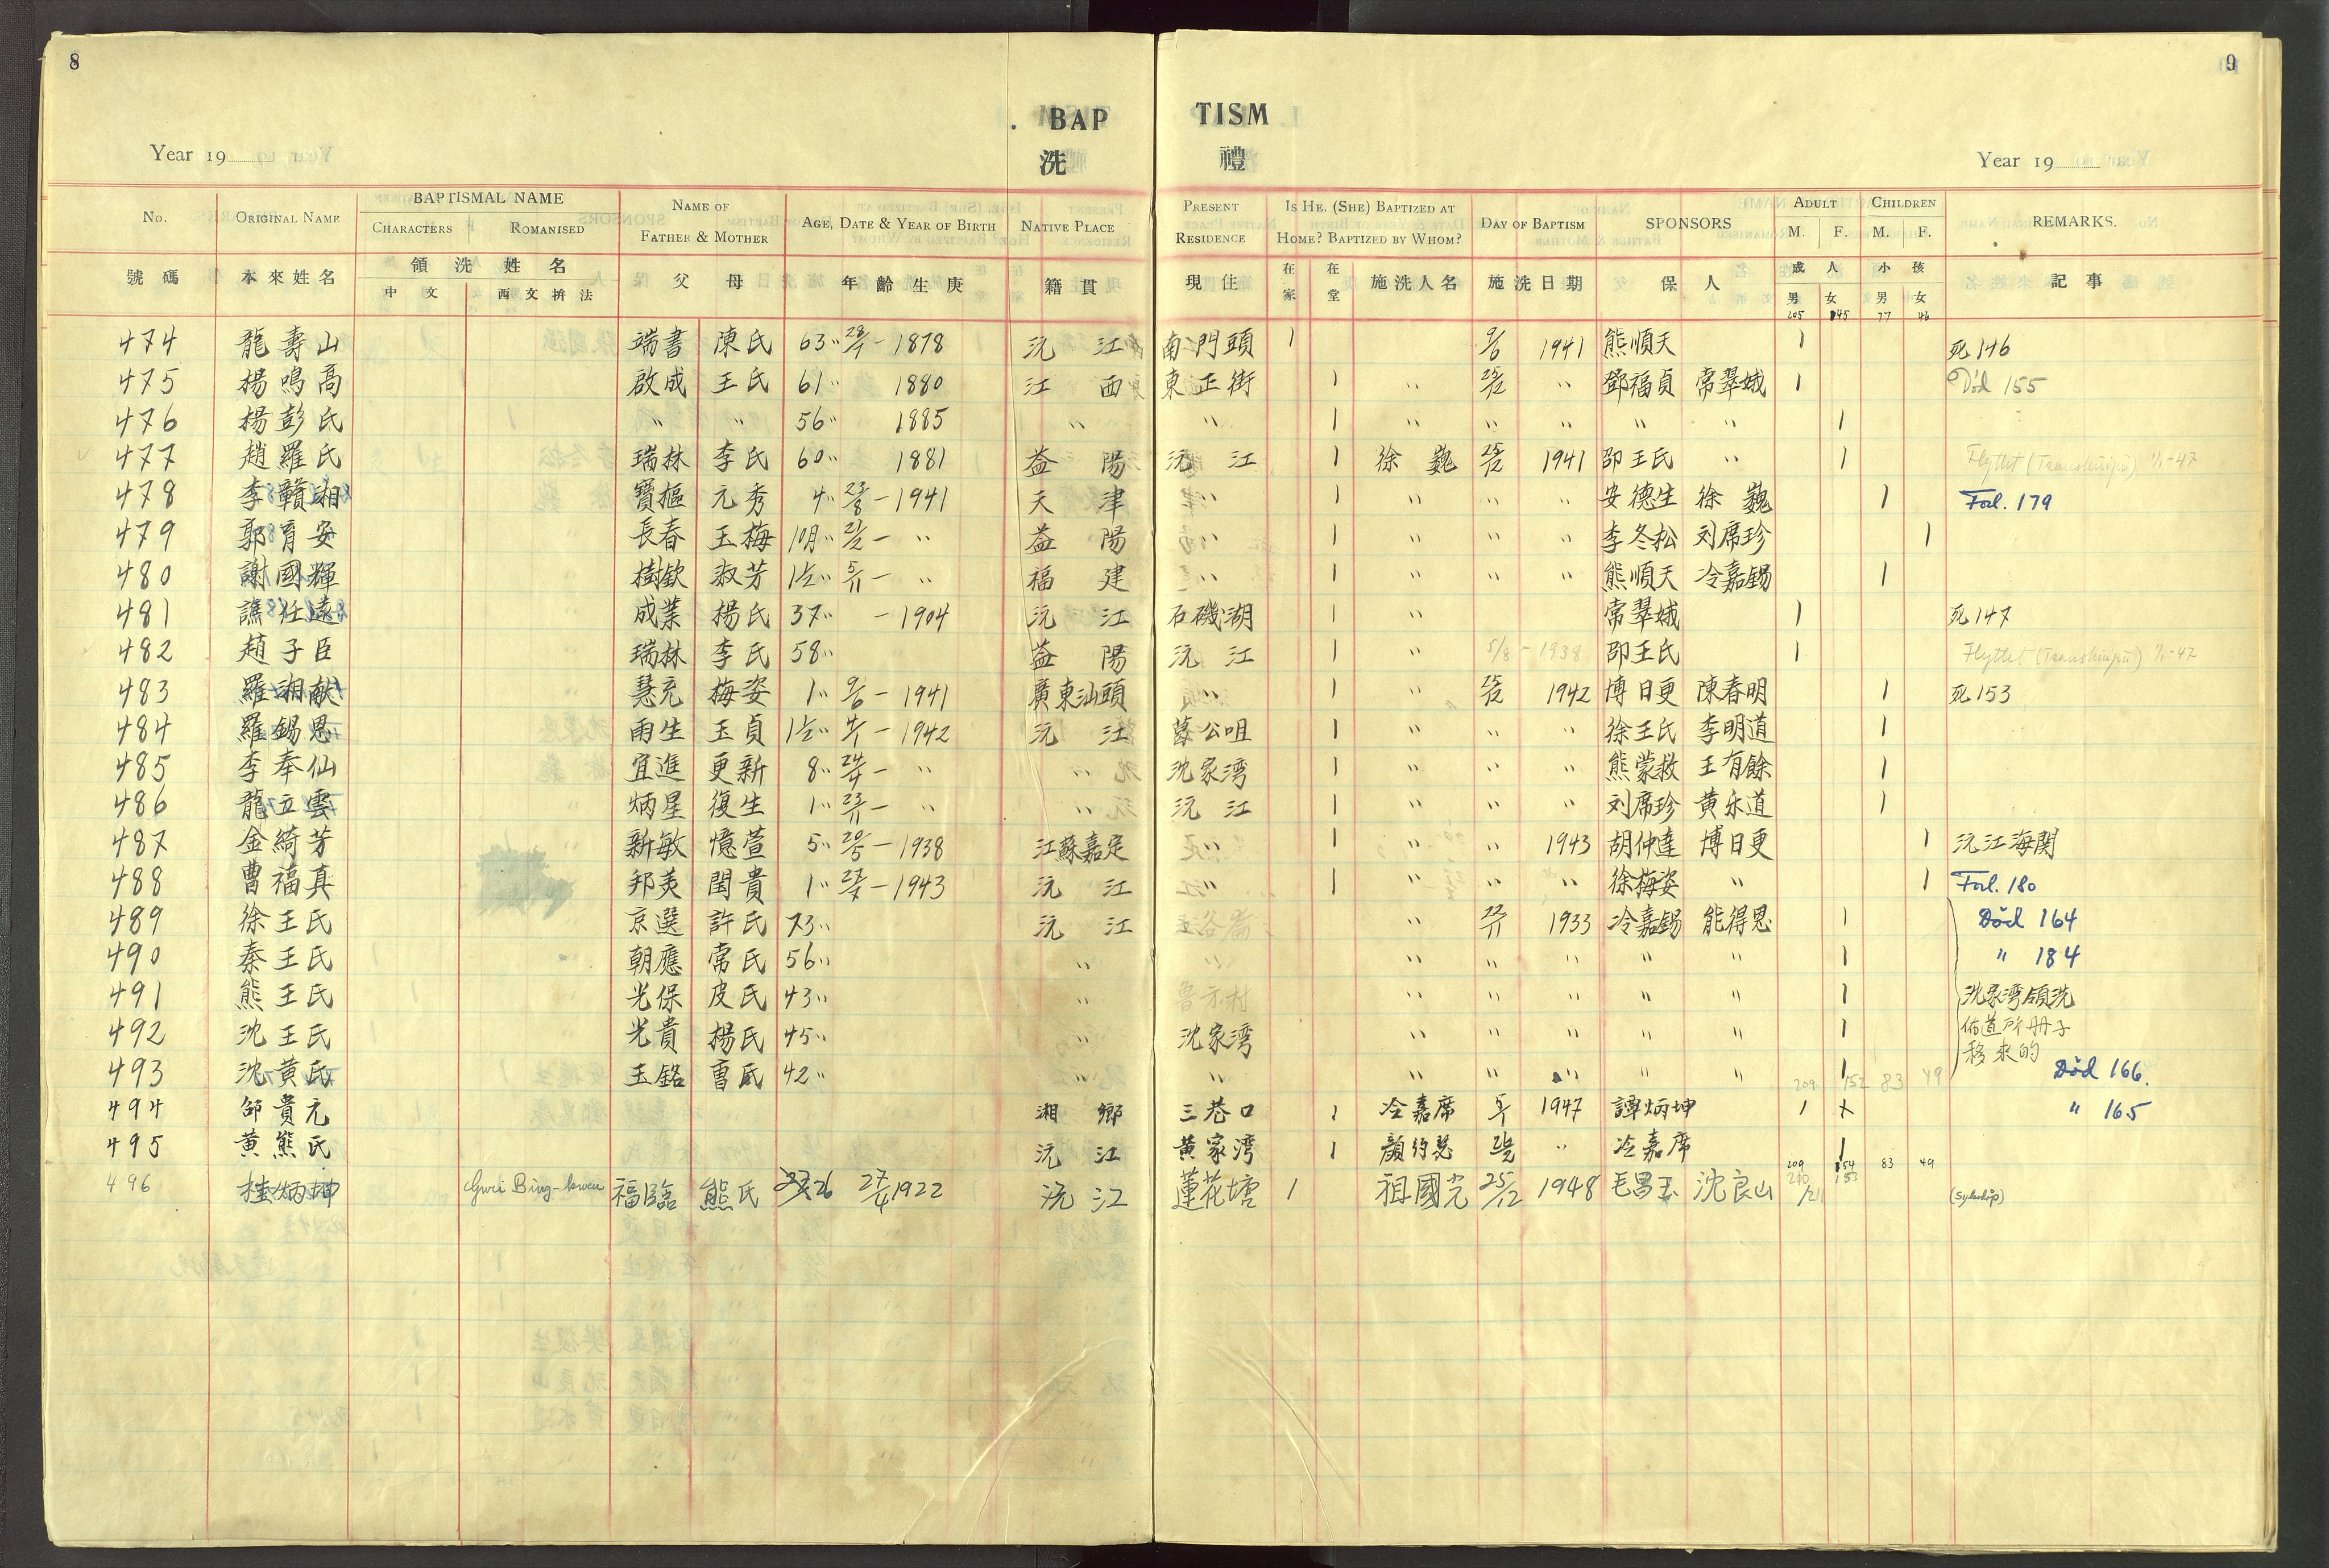 8
9
BAP TISM
洗 禮
Year 19
Year 19
No. ORIGINAL NAME BAPTISMAL NAME CHARACTERS ROMANISED NAME OF FATHER & MOTHER AGE, DATE & YEAR OF BIRTH NATIVE PLACE PRESENT RESIDENCE IS HE, (SHE) BAPTIZED AT HOME? BAPTIZED BY WHOM? DAY OF BAPTISM SPONSORS ADULT M. F. CHILDREN M. F. REMARKS.
號碼 本來姓名 領洗姓名 中文 西文拚法 父 母 年齡生庚 籍貫 現住 在家 在堂 施洗人名 施洗日期 保人 成人 男 女 小孩 男 女 記事
205 145 77 46
474 龍壽山 端書 陳氏 63〃 28/1 - 1878 沅江 南門頭 1 9/6 1941 熊順天 1 死146
475 楊鳴高 啟成 王氏 61〃 1880 江西 東正街 1 〃 25/12 〃 鄧福貞 常翠娥 1 Död 155
476 楊彭氏 〃 〃 56〃 1885 〃 〃 1 〃 〃 〃 〃 〃 1
477 趙羅氏 瑞林 李氏 60〃 1881 益陽 沅江 1 徐巍 25/12 1941 邵王氏 〃 1 Flyttet
478 李贛湘 寶樞 元秀 4〃 23/8 - 1941 天津 〃 1 〃 〃 〃 安德生 徐巍 1 Forl. 179
479 郭育安 長春 玉梅 10月〃 21/2 - 〃 益陽 〃 1 〃 〃 〃 李冬松 刘席珍 1
480 謝國輝 樹欽 淑芳 1½〃 5/11 - 〃 福建 〃 1 〃 〃 〃 熊順天 冷嘉錫 1
481 譙任遠 成業 楊氏 37〃 - 1904 沅江 石磯湖 1 〃 常翠娥 1 死147
482 趙子臣 瑞林 李氏 58〃 益陽 沅江 1 〃 5/8 - 1938 邵王氏 1 Flyttet
483 羅湘献 慧充 梅姿 1〃 9/6 - 1941 廣東汕頭 〃 1 〃 25/12 1942 博日更 陳春明 1 死153
484 羅錫恩 雨生 玉貞 1½〃 4/1 - 1942 沅江 公咀 1 〃 〃 〃 徐王氏 李明道 1
485 李奉仙 宜進 更新 8〃 24/4 - 〃 〃 沈家湾 1 〃 〃 〃 熊蒙救 王有餘 1
486 龍立雲 炳星 復生 1〃 23/11 - 〃 〃 沅江 1 〃 〃 〃 刘席珍 黄乐道 1
487 金綺芳 新敏 憶萱 5〃 20/5 - 1938 江蘇嘉定 〃 1 〃 〃 1943 胡仲達 博日更 1 沅江海関
488 曹福真 邦美 閏貴 1〃 27/4 - 1943 沅江 〃 1 〃 〃 〃 徐梅姿 〃 1 Forl. 180
489 徐王氏 京選 許氏 73〃 沅江 〃 22/11 1933 冷嘉錫 能得恩 1 Död 164
490 秦王氏 朝應 常氏 56〃 〃 〃 〃 〃 〃 〃 1 〃 184
491 熊王氏 光保 皮氏 43〃 〃 〃 〃 〃 〃 〃 1 沈家湾領洗
492 沈王氏 光貴 楊氏 45〃 〃 沈家湾 〃 〃 〃 〃 〃 1 佈道所册子
移來的
493 沈黄氏 玉銘 曹氏 42〃 〃 〃 〃 〃 〃 〃 〃 1 Död 166.
209 152 83 49
494 邹貴元 湘鄉 三巷口 1 冷嘉席 5/1 1947 譚炳坤 1 〃 165
495 黄熊氏 沅江 黄家湾 1 顏約瑟 〃 冷嘉席 1
209 154 83 49
496 桂炳坤 Gwei Bing-kwen 福臨 熊氏 26 27/4 1922 沅江 蓮花塘 1 祖國光 25/12 1948 毛昌玉 沈良山 210/211 153